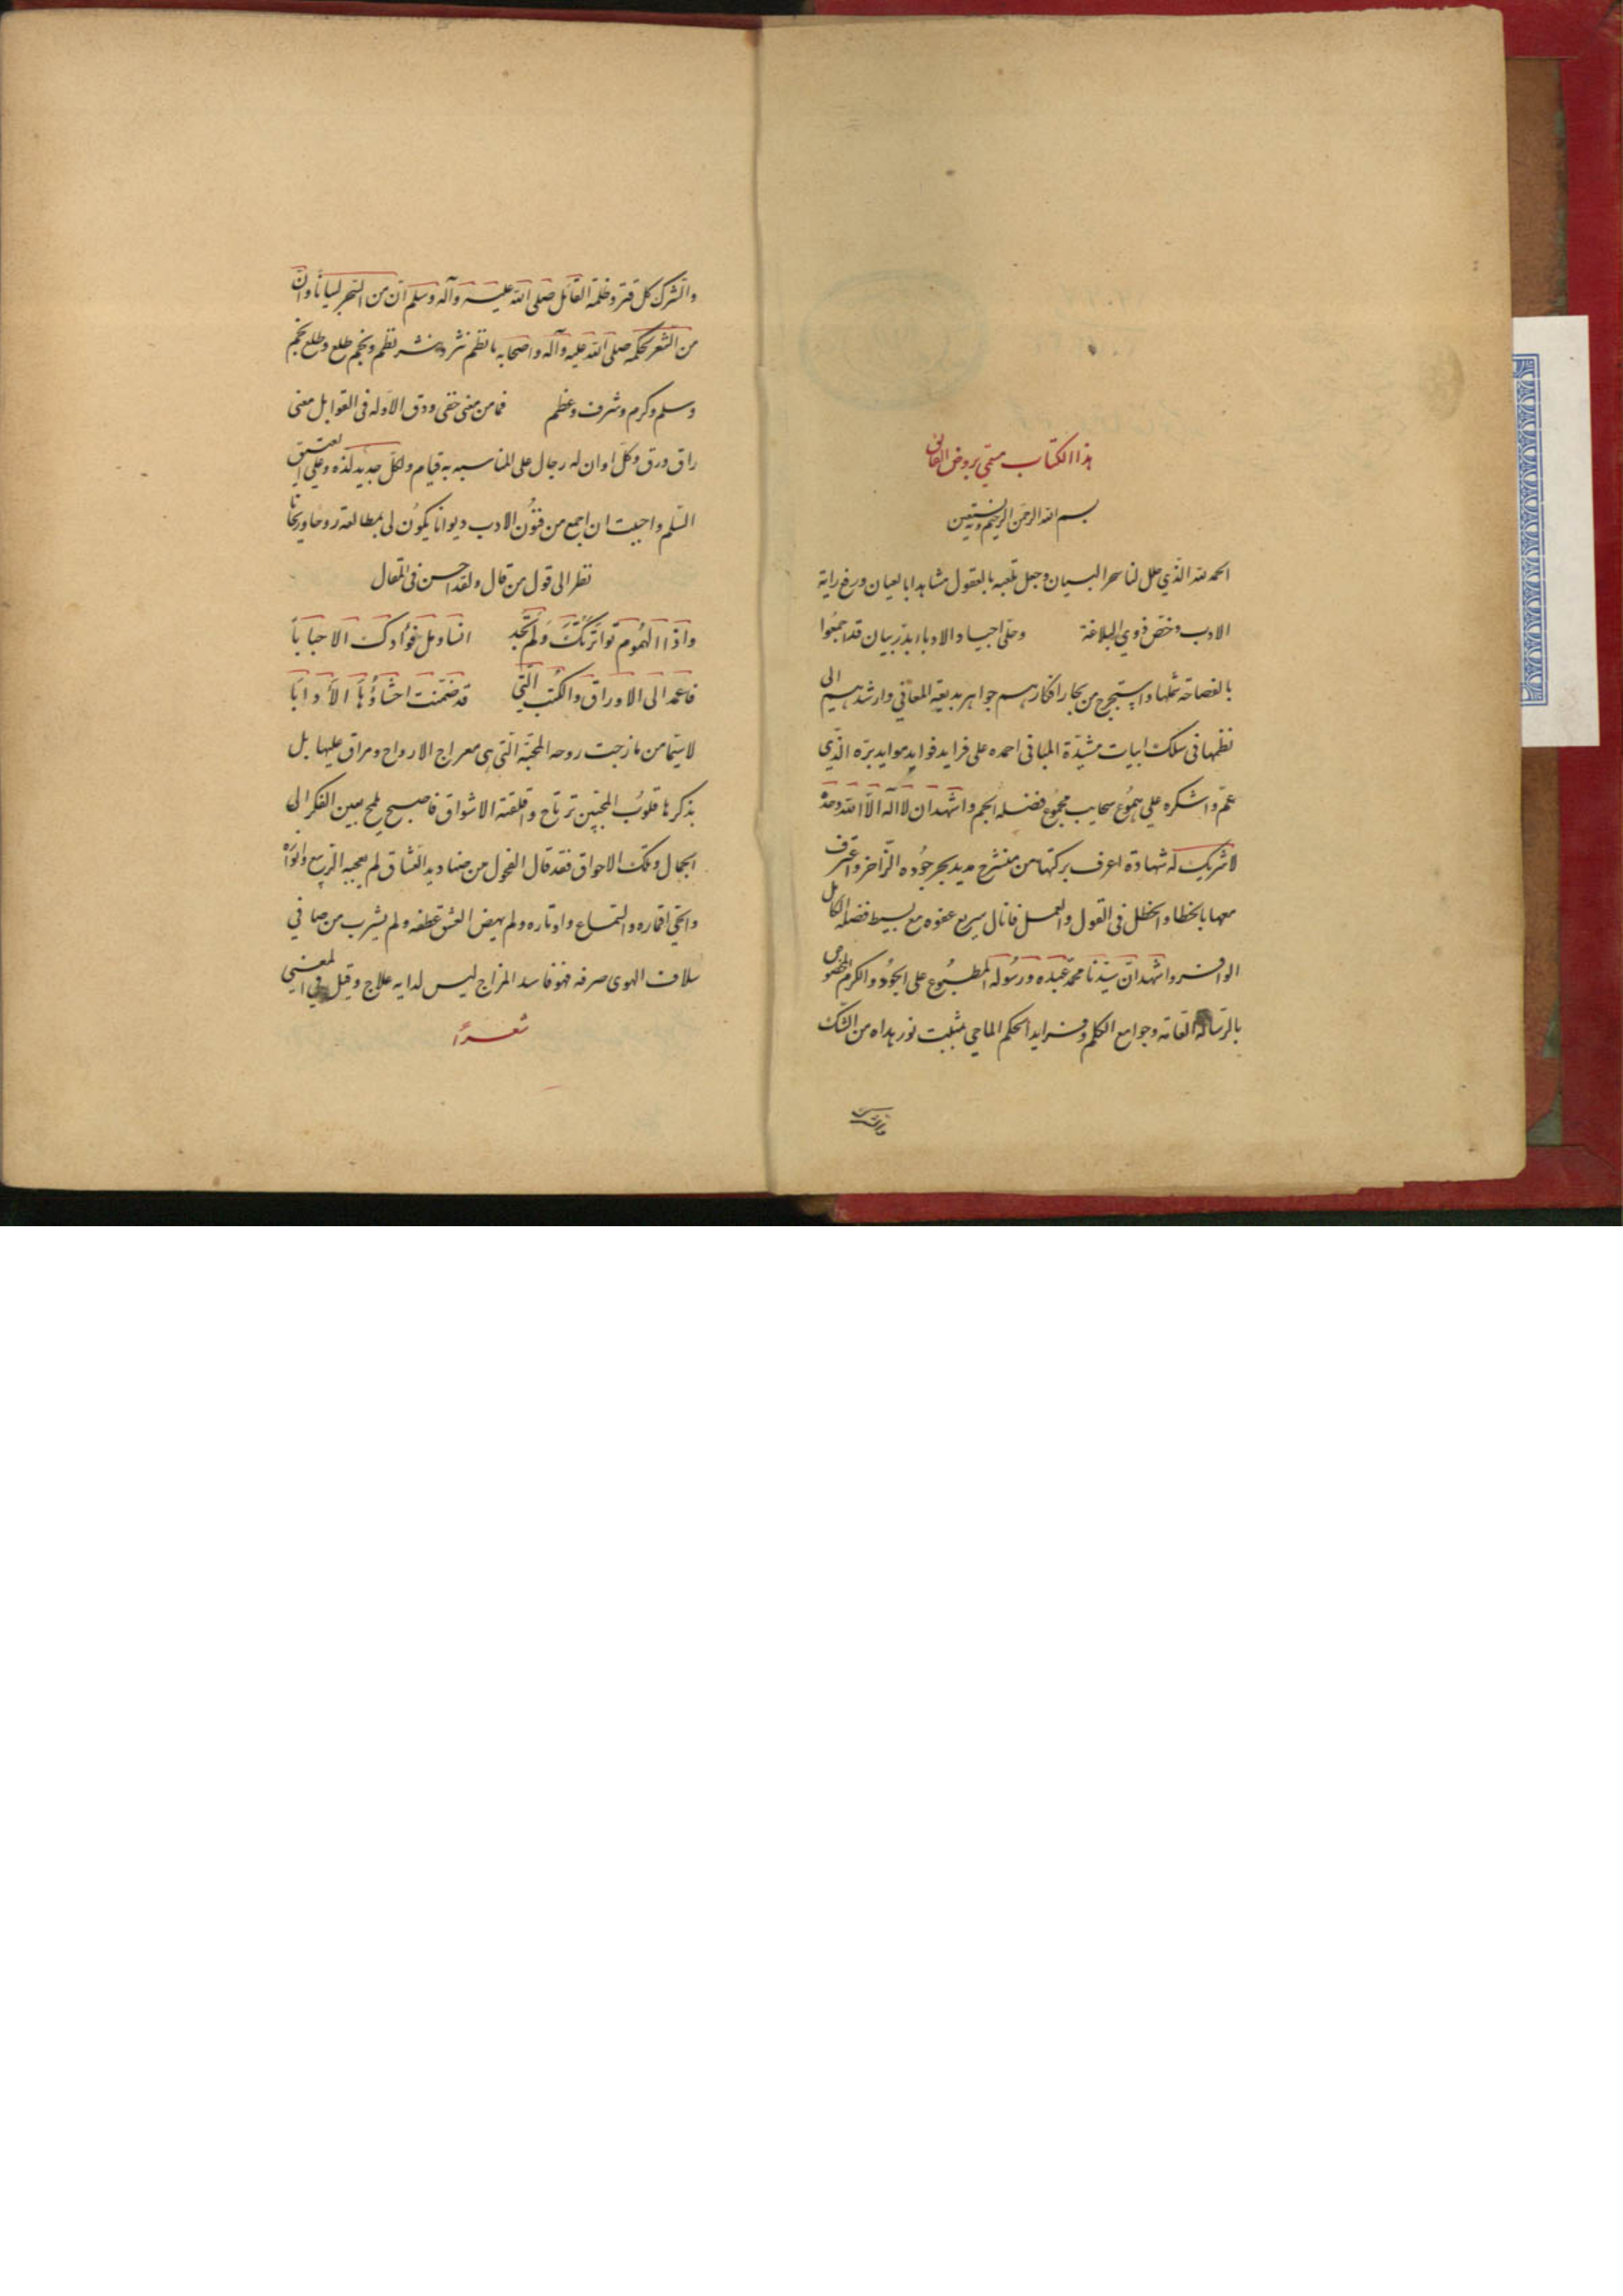 هذا الكتاب مسمى بروض الغانى
بسم الله الرحمن الرحيم وبه نستعين
الحمد لله الذي حلل لنا سحر البيان وجعل تلعبه بالعقول مشاهدا بالعيان ورفع راية
الادب وخص ذوي البلاغة وحلى اجياد الادباء بدرر بيان قد اجمعوا
بالفصاحة شملها واستخرج من بحار افكارهم جواهر بديعة المعاني وارشدهم الى
نظمها فى سلك ابيات مشيّدة المبانى احمده على فرايد فوايد موايد بره الذي
عمّ واشكره على هموع سحايب مجموع فضله الجم واشهد ان لا اله الا الله وحده
لا شريك له شهادة اعرف بركتها من منشرح مديد بحر جوده الزاخر واعترف
معها بالخطا والخطل فى القول والعمل فانال سريع عفوه مع بسيط فضله الكامل
الوافر واشهد ان سيدنا محمد عبده ورسوله المطبوع على الجود والكرم المخصوص
بالرسالة العامة وجوامع الكلم وفرايد الحكم الماحي مثبت نور هداه من الشك
والشرك كل قتر وظلمة القائل صلى الله عليه وآله وسلم ان من السحر لبيانا وان
من الشعر لحكمه صلى الله عليه وآله واصحابه ما نظم نثر ونثر نظم ونجم طلع وطلع نجم
وسلم وكرم وشرف وعظم فما من معنى خفى ودق الا وله فى القوابل معنى
راق ورق وكل اوان له رجال على المناسبه به قيام ولكل جديد لذه وعلى العتيق
السّلم واحببت ان اجمع من فنون الادب ديوانا يكون لى بمطالعته روحا وريحانا
نظرا الى قول من قال ولقد احسن فى المقال
واذا الهموم تواترتك ولم تجد انسا ومل فؤادك الاحبابا
فاعمد الى الاوراق والكتب التي قد ضمنت احشاؤها الأدابا
لا سيّما من مازجت روحه المحبّة التي هى معراج الارواح ومراق عليها بل
بذكرها قلوب المحبين ترتاح واقلقته الاشواق فاصبح يلمح بعين الفكر الى
الجمال وتلك الاحواق فقد قال الفحول من صناديد العشاق لم يعجبه الربيع وانواره
والحى اقماره والسماع واوتاره ولم يهض العشق عطفه ولم يشرب من صافي
سلاف الهوى صرفه فهو فاسد المزاج ليس لدايه علاج وقيل في المعنى
شعرًا